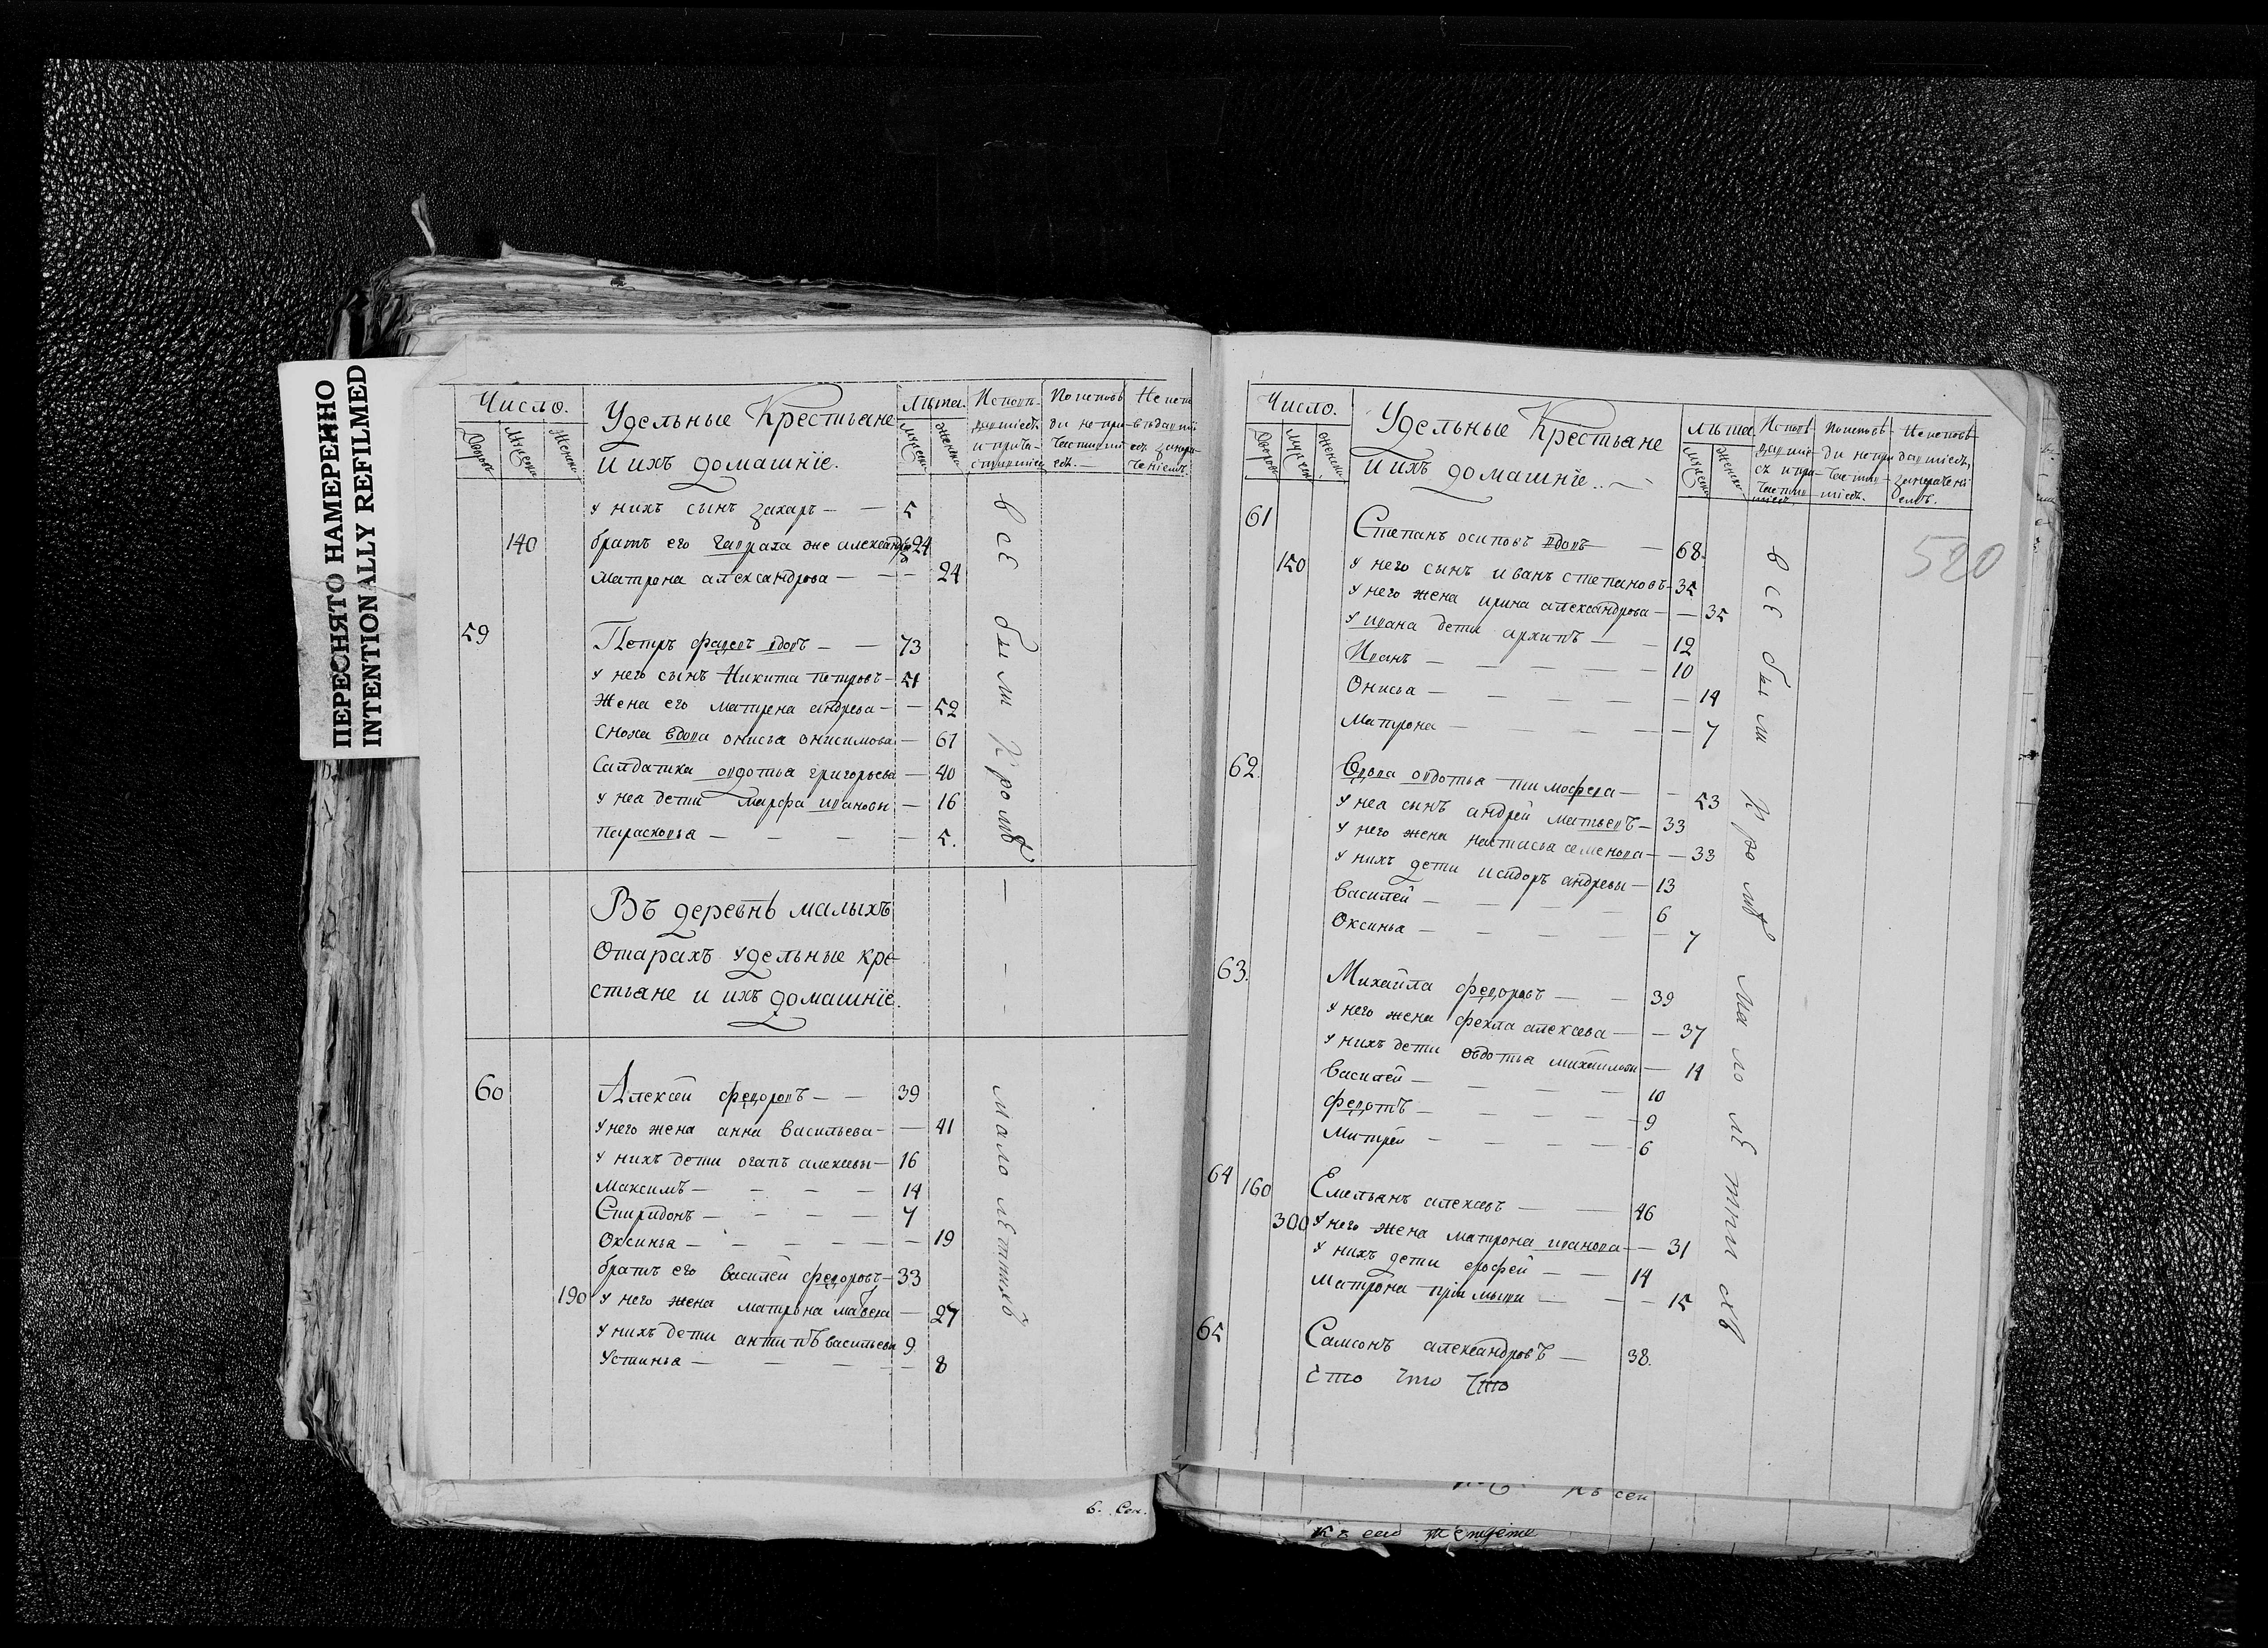 ПЕРЕСНЯТО НАМЕРЕННО
INTENTIONALLY REFILMED
Число.
Удельные Крестьане
Лѣта.
и ихъ домашнїе.
у нихъ сынъ захаръ — — 5
140 братъ его 24
матрона александрова — — 24
59 Петръ вдовъ — — 73
у него сынъ Никита петровъ — 51
жена его матрена андрева — — 52
сноха вдова онисьа онисимова — 61
Салдатка овдотьа григорьева — 40
у неа дети марфа ивановы — 16
парасковьа — — — — 5.
Въ деревнѣ малыхъ
Отарахъ удельные кре-
стьане и ихъ домашнїе.
60 Алексей федоровъ — — 39
у него жена анна васильева — — 41
у нихъ дети агапъ алексевы — 16
Максимъ — — — — 14
Спиридонъ — — — — 7
Оксиньа — — — — — 19
братъ его василей федоровъ — 33
190 у него жена матрона — 27
у нихъ дети антипъ васильевы 9
Устиньа — — — — 8
всѣ были кромѣ
малолѣтныхъ
6. Сен.
Число.
Удельные Крестьане
Лѣта
и ихъ домашнїе.. —
520
61 Степанъ осиповъ вдовъ — — 68.
150 у него сынъ иванъ степановъ — 35
у него жена ирина александрова — — 35
у ивана дети архипъ — — 12
Иванъ — — — — — 10
Онисьа — — — — — 14
Матрона — — — — — 7
62. Вдова овдотьа тимофева — — 53
у неа сынъ андрей матвевъ — 33
у него жена настасьа семенова — — 33
у нихъ дети исидоръ андревы — 13
василей — — — — 6
Оксиньа — — — — — 7
63. Михайла федоровъ — — 39
у него жена фекла алексева — — 37
у нихъ дети овдотьа михайловы — 14
василей — — — — 10
федотъ — — — — 9
Митрей — — — — 6
64 160 Емельанъ алексевъ — — 46
300 у него жена матрона иванова — — 31
у нихъ дети ерофей — — 14
матрона — — — 15
65 Самсонъ александровъ — 38.
что что что
всѣ были кромѣ малолѣтныхъ